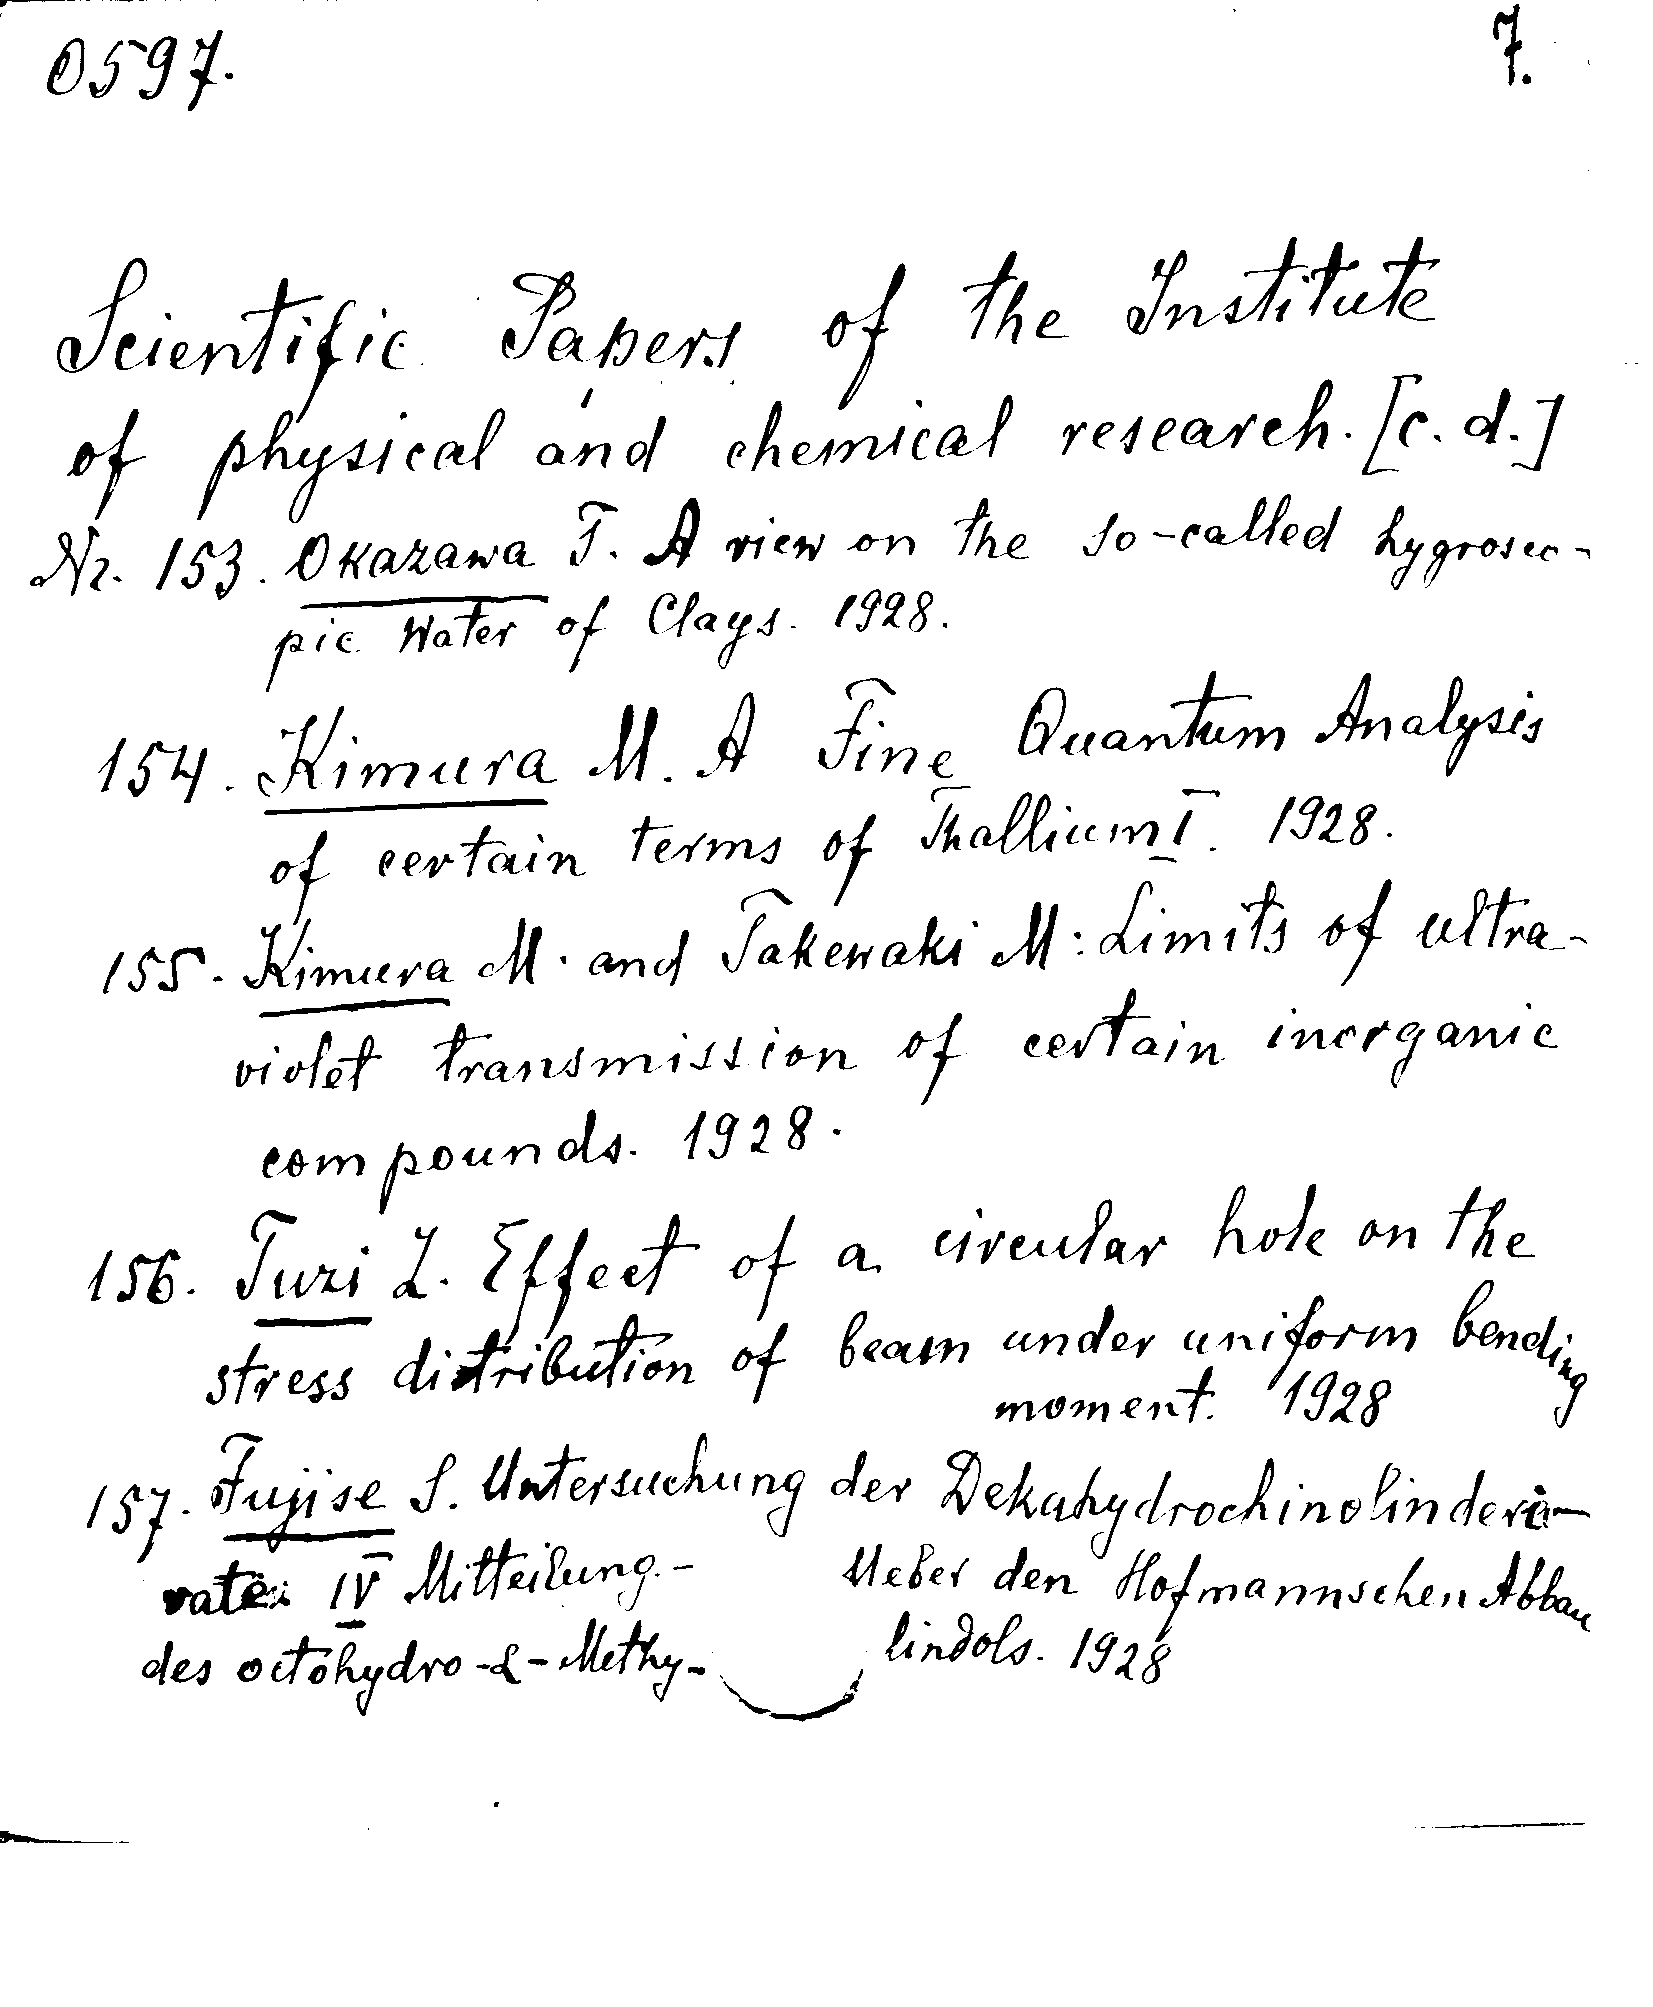 0597.
7.
Scientific Papers of the Institute
of physical and chemical research. [c. d.]
Nr. 153. Okazawa T. A view on the so-called hygrosco-
pic Water of Clays. 1928.
154. Kimura M. A Fine Quantum Analysis
of certain terms of Thallium I. 1928.
155. Kimura M. and Takewaki M: Limits of ultra-
violet transmission of certain inorganic
compounds. 1928.
156. Tuzi Z. Effect of a circular hole on the
stress distribution of beam under uniform bending
moment. 1928
157. Fujise S. Untersuchung der Dekahydrochinolinderi-
vate: IV Mitteilung. - Ueber den Hofmannschen Abbau
des octohydro-α-Methy- lindols. 1928